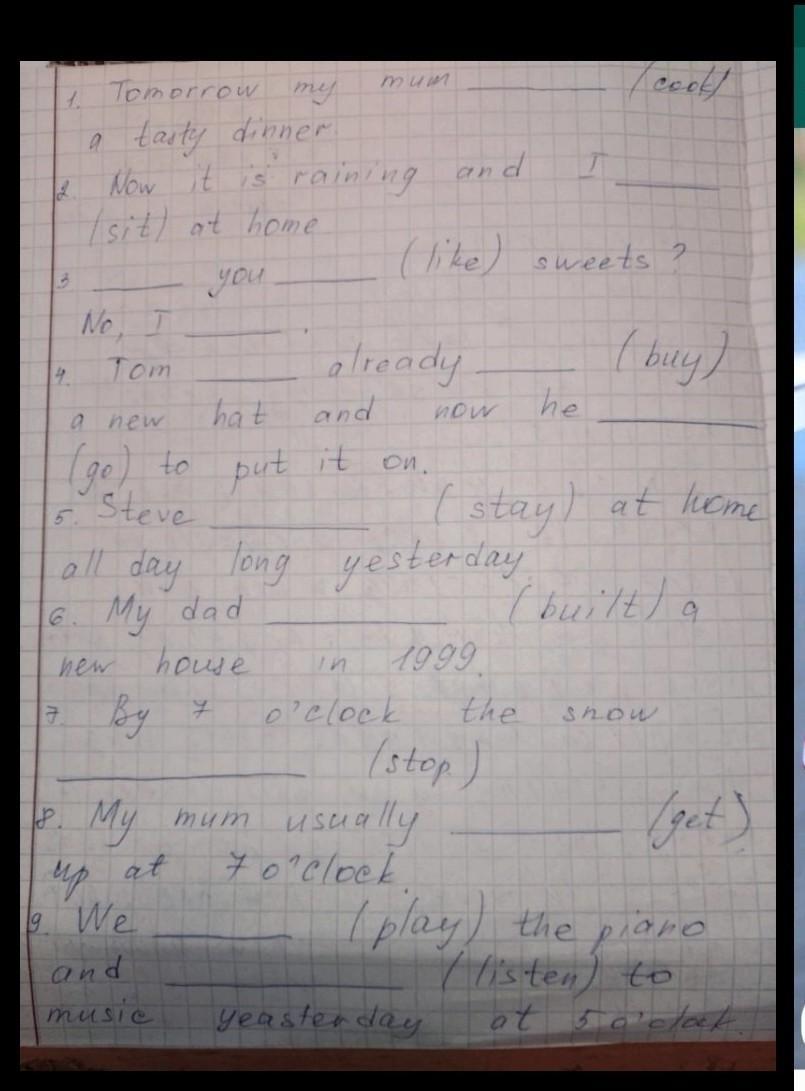 1. Tomorrow my mum ________ (cook)
a tasty dinner.
2. Now it is raining and I ________
(sit) at home
3 ________ you ________ (like) sweets?
No, I ________.
4. Tom ________ already ________ (buy)
a new hat and now he ________
(go) to put it on.
5. Steve ________ (stay) at home
all day long yesterday.
6. My dad ________ (built) a
new house in 1999.
7. By 7 o'clock the snow
________ (stop)
8. My mum usually ________ (get)
up at 7 o'clock.
9. We ________ (play) the piano
and ________ (listen) to
music yeasterday at 5 o'clock.